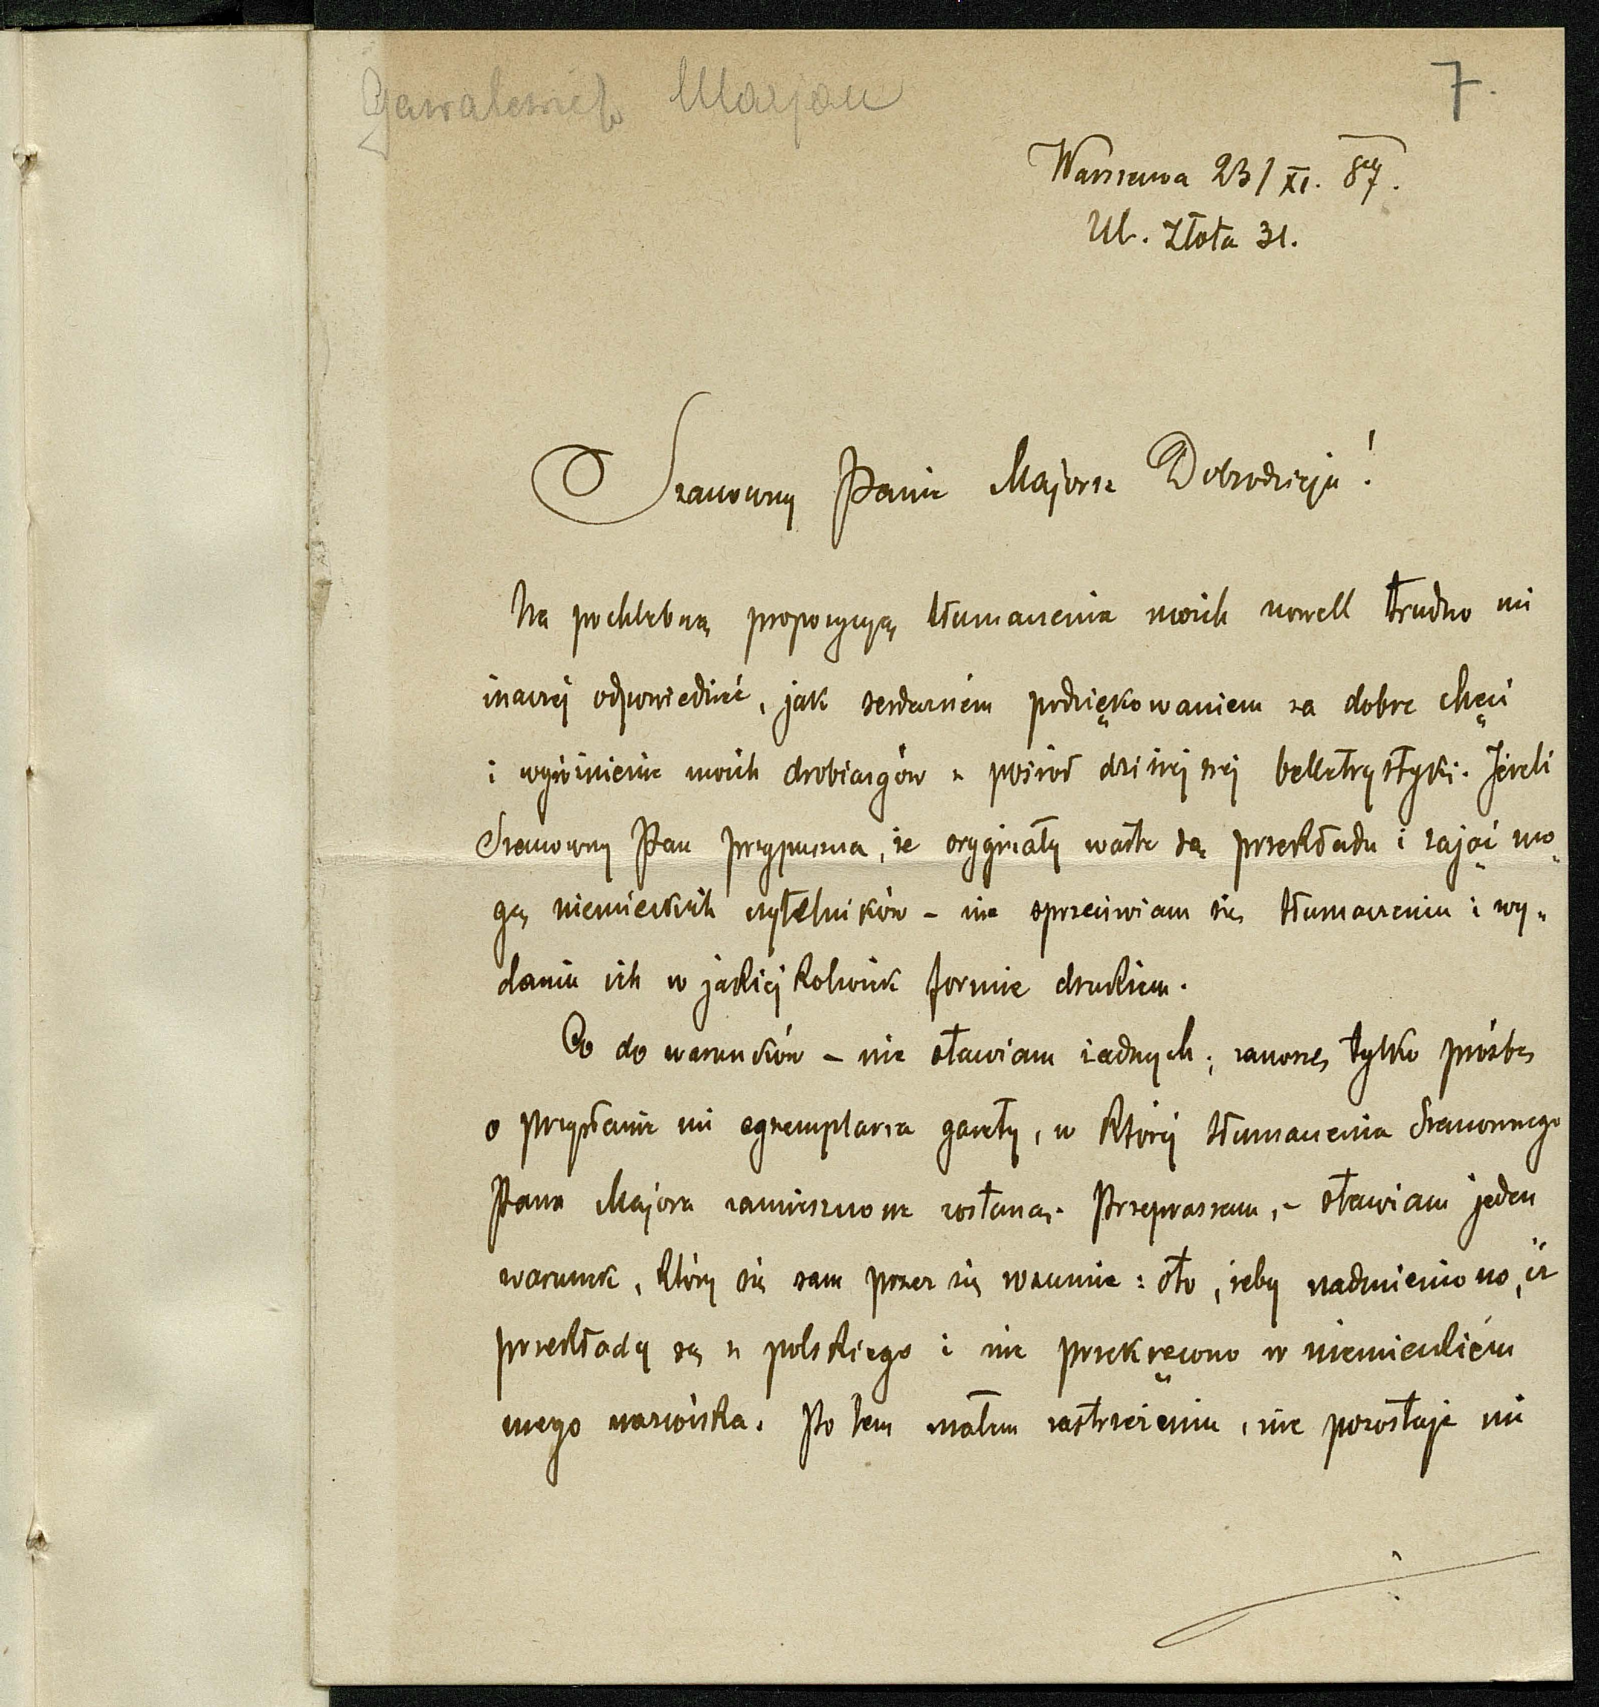 Gawalewicz Marjan
7.
Warszawa 23/XI. 87.
Ul. Złota 31.
Szanowny Panie Majorze Dobrodzieju!
Na pochlebną propozycyą tłumaczenia moich nowell trudno mi
inaczej odpowiedzieć, jak serdeczném podziękowaniem za dobre chęci
i wyróżnienie moich drobiazgów z pośród dzisiejszej belletrystyki. Jeżeli
Szanowny Pan przypuszcza, że oryginały warte są przekładu i zająć mo„
gą niemieckich czytelników – nie sprzeciwiam się tłumaczeniu i wy„
daniu ich w jakiejkolwiek formie drukiem.
Co do warunków – nie stawiam żadnych; zanoszę tylko prośbę
o przysłanie mi egzemplarza gazety, w której tłumaczenia Szanownego
Pana Majora zamieszczone zostaną. Przepraszam, – stawiam jeden
warunek, który się sam przez się rozumie: oto, żeby nadmieniono, iż
przekłady są z polskiego i nie przekręcono w niemieckiém
mego nazwiska. Po tem małem zastrzeżeniu, nie pozostaje mi